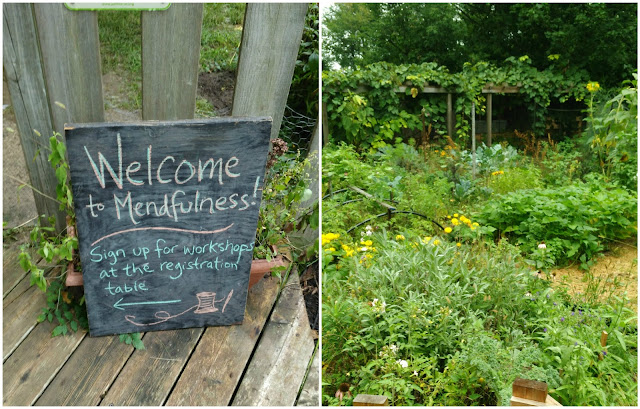 Welcome
to Mendfulness!
Sign up for workshops
at the registration
table